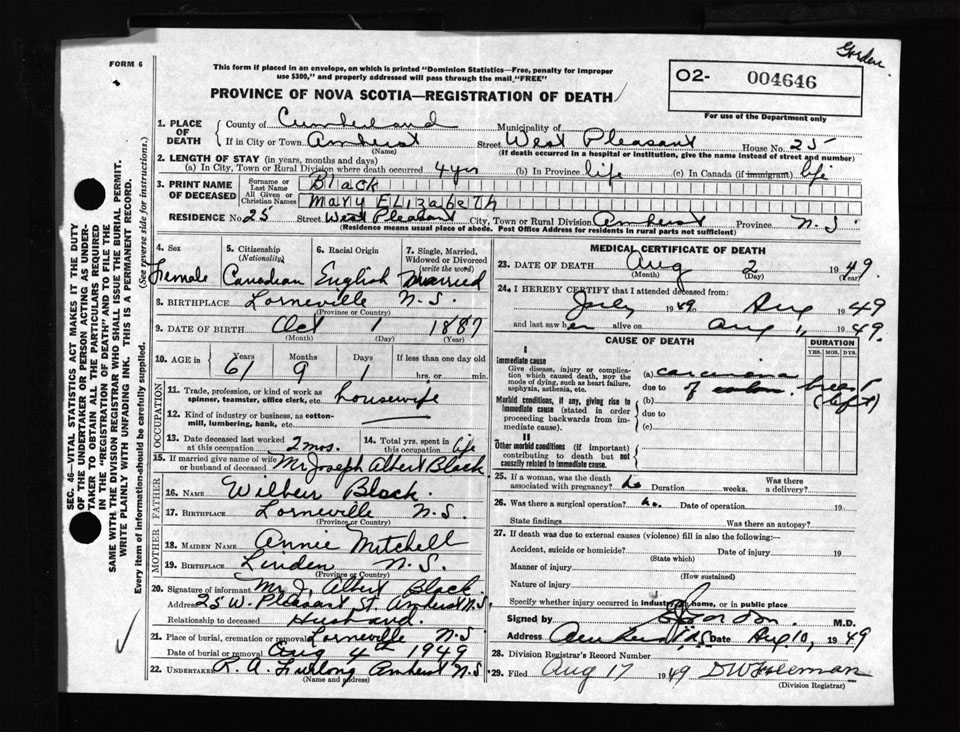 Gordon
FORM 6
This form if placed in an envelope, on which is printed "Dominion Statistics—Free, penalty for improper
use $300," and properly addressed will pass through the mail "FREE"
O2- 004646
For use of the Department only
PROVINCE OF NOVA SCOTIA—REGISTRATION OF DEATH
1. PLACE OF DEATH
County of Cumberland Municipality of
If in City or Town Amherst Street West Pleasant House No. 25
(Name) (If death occurred in a hospital or institution, give the name instead of street and number)
2. LENGTH OF STAY (in years, months and days)
(a) In City, Town or Rural Division where death occurred 4 yrs (b) In Province life (c) In Canada (if immigrant) life
3. PRINT NAME OF DECEASED
Surname or Last Name Black
All Given or Christian Names Mary Elizabeth
RESIDENCE No. 25 Street West Pleasant City, Town or Rural Division Amherst Province N.S
(Residence means usual place of abode. Post Office Address for residents in rural parts not sufficient)
4. Sex Female
5. Citizenship (Nationality) Canadian
6. Racial Origin English
7. Single, Married, Widowed or Divorced (write the word) Married
8. BIRTHPLACE Lorneville N.S.
(Province or Country)
9. DATE OF BIRTH Oct 1 1887
(Month) (Day) (Year)
10. AGE in Years Months Days If less than one day old
61 9 1 hrs. or min.
OCCUPATION
11. Trade, profession, or kind of work as
spinner, teamster, office clerk, etc. housewife
12. Kind of industry or business, as cotton-
mill, lumbering, bank, etc.
13. Date deceased last worked at this occupation 2 mos.
14. Total yrs. spent in this occupation life
15. If married give name of wife
or husband of deceased Mr Joseph Albert Black
FATHER
16. NAME Wilbur Black.
17. BIRTHPLACE Lorneville N.S.
(Province or Country)
MOTHER
18. MAIDEN NAME Annie Mitchell
19. BIRTHPLACE Linden N.S.
(Province or Country)
20. Signature of informant Mr. J. Albert Black
Address 25 W. Pleasant St. Amherst N.S.
Relationship to deceased Husband.
21. Place of burial, cremation or removal Lorneville N.S
Date of burial or removal Aug 4th 1949
22. UNDERTAKER R. A. Furlong Amherst N.S
(Name and address)
MEDICAL CERTIFICATE OF DEATH
23. DATE OF DEATH Aug 2 1949.
(Month) (Day) (Year)
24. I HEREBY CERTIFY that I attended deceased from:
July 1949 to Aug 1949
and last saw her alive on Aug 1, 1949.
CAUSE OF DEATH DURATION
YRS. MOS. DYS.
I
Immediate cause
Give disease, injury or complication which caused death, not the mode of dying, such as heart failure, asphyxia, asthenia, etc.
(a) carcinoma
due to of breast
Morbid conditions, if any, giving rise to immediate cause (stated in order proceeding backwards from immediate cause).
(b) (left)
due to
(c)
II
Other morbid conditions (if important) contributing to death but not causally related to immediate cause.
25. If a woman, was the death
associated with pregnancy? no Duration weeks. Was there a delivery?
26. Was there a surgical operation? no. Date of operation 19
State findings Was there an autopsy?
27. If death was due to external causes (violence) fill in also the following:—
Accident, suicide or homicide? Date of injury 19
(State which)
Manner of injury
(How sustained)
Nature of injury
Specify whether injury occurred in industry, home, or in public place
Signed by M.D.
Address Date Aug 10, 1949
28. Division Registrar's Record Number
29. Filed Aug 17 1949
(Division Registrar)
SEC. 46—VITAL STATISTICS ACT MAKES IT THE DUTY
OF THE UNDERTAKER OR PERSON ACTING AS UNDER-
TAKER TO OBTAIN ALL THE PARTICULARS REQUIRED
IN THE "REGISTRATION OF DEATH" AND TO FILE THE
SAME WITH THE DIVISION REGISTRAR WHO SHALL ISSUE THE BURIAL PERMIT.
WRITE PLAINLY WITH UNFADING INK. THIS IS A PERMANENT RECORD.
Every item of information should be carefully supplied. (See reverse side for instructions.)